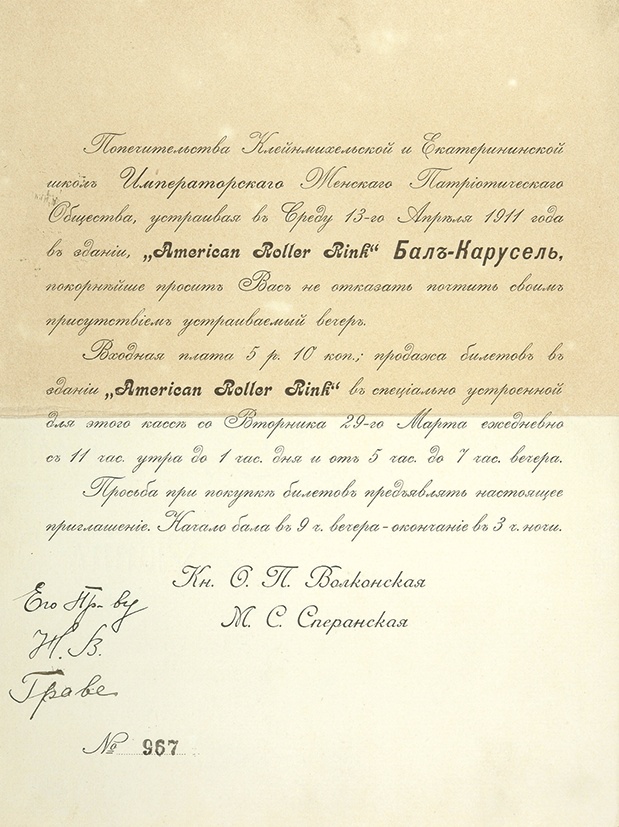 Попечительства Клейнмихельской и Екатерининской
школъ Императорскаго Женскаго Патріотическаго
Общества, устраивая въ Среду 13-го Апрѣля 1911 года
въ зданіи, „American Roller Rink“ Балъ-Карусель,
покорнѣйше просить Васъ не отказать почтить своимъ
присутствіемъ устраиваемый вечеръ.
Входная плата 5 р. 10 коп.; продажа билетовъ въ
зданіи „American Roller Rink“ въ спеціально устроенной
для этого кассѣ со Вторника 29-го Марта ежедневно
съ 11 час. утра до 1 час. дня и отъ 5 час. до 7 час. вечера.
Просьба при покупкѣ билетовъ предъявлять настоящее
приглашеніе. Начало бала въ 9 ч. вечера - окончаніе въ 3 ч. ночи.
Кн. О. П. Волконская
М. С. Сперанская
Его Пр-ву
Н. В.
Граве
№ 967